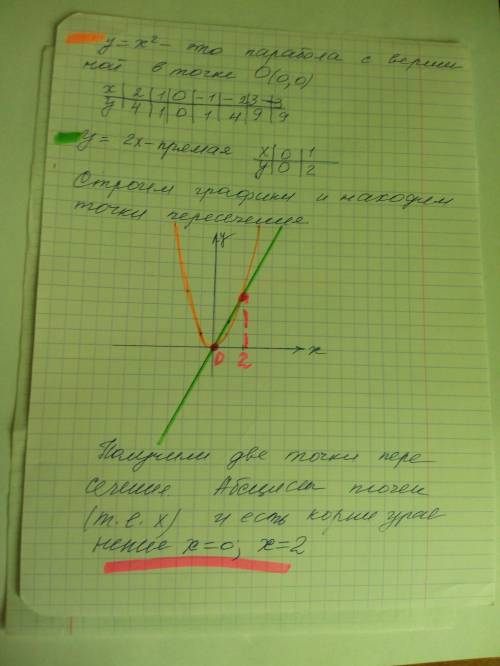 y = x² - это парабола с верши
ной в точке O(0,0)
x | 2 | 1 | 0 | -1 | -2 | 3 | -3
y | 4 | 1 | 0 | 1 | 4 | 9 | 9
y = 2x - прямая x | 0 | 1
y | 0 | 2
Строим графики и находим
точки пересечения
y
0 2 x
Получили две точки пере
сечения. Абсциссы точек
(т.е. x) и есть корни урав
нения x=0; x=2